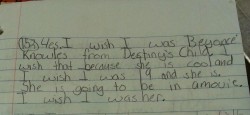 (157) Yes. I wish I was Beyoncé
Knowles from Destiny's Child. I
wish that because she is cool and
I wish I was 19 and she is.
She is going to be in a movie.
I wish I was her.